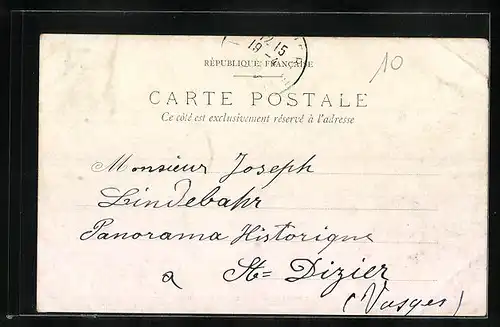 12-15
19
10
RÉPUBLIQUE FRANÇAISE
CARTE POSTALE
Ce côté est exclusivement réservé à l'adresse
Monsieur Joseph
Lindebahr
Panorama Historique
a St= Dizier
(Vosges)